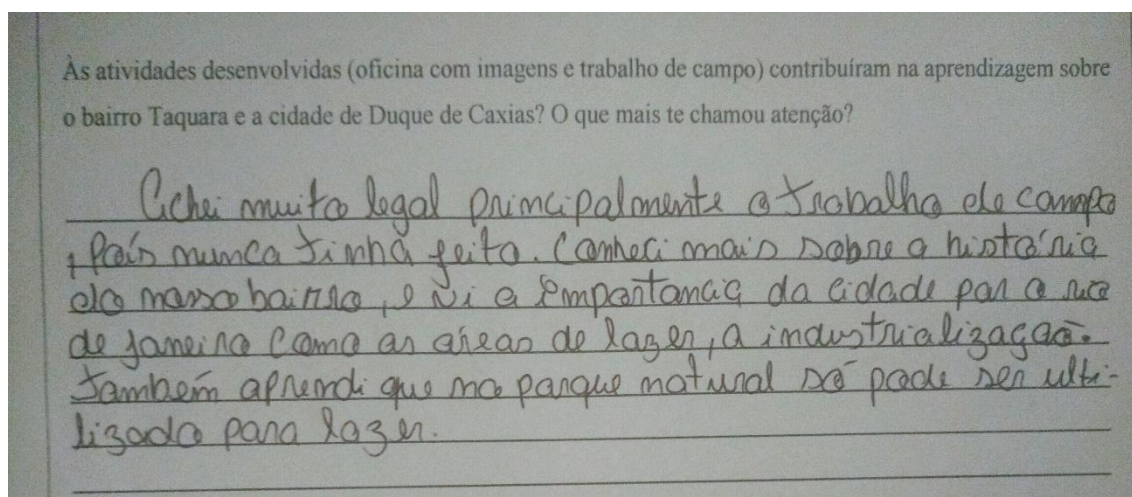 Às atividades desenvolvidas (oficina com imagens e trabalho de campo) contribuíram na aprendizagem sobre
o bairro Taquara e a cidade de Duque de Caxias? O que mais te chamou atenção?
Achei muito legal principalmente o trabalho de campo
, Pois nunca tinha feito. Conheci mais sobre a história
do nosso bairro, e vi a empontancia da cidade para o rio
de janeiro como as áreas de lazer, a industrialização.
também aprendi que no parque natural só pode ser ulti-
lizado para lazer.